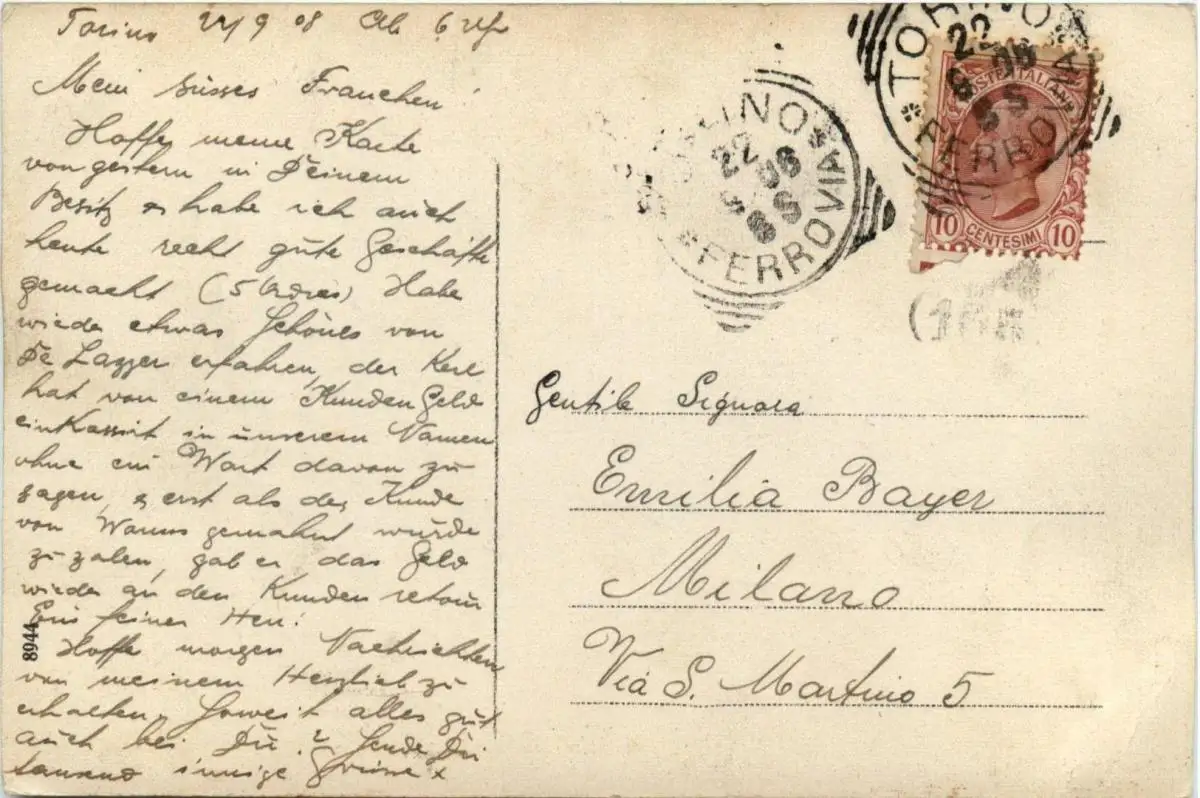 Torino 22/9 08 Ab 6 Uhr
Mein süsses Frauchen!
Hoffe meine Karte
von gestern in Deinem
Besitz & habe ich auch
heute recht gute Geschäfte
gemacht (5 Ordres) Habe
wieder etwas Schönes von
De Lazzer erfahren, der Kerl
hat von einem Kunden Geld
einkassirt in unserem Namen
ohne ein Wort davon zu
sagen, & erst als der Kunde
von gemahnt wurde
zu zalen, gab er das Geld
wieder an den Kunden retour
Ein feiner Herr!
Hoffe morgen Nachrichten
von meinem Herzlieb zu
erhalten, Soweit alles gut
auch bei Dir? Sende Dir
tausend innige Grüsse &
8944
TORINO
22
9 08
8S
* FERROVIA *
TORINO
22
9 08
8S
* FERROVIA *
POSTE ITALIANE
10 CENTESIMI 10
Gentile Signora
Emilia Bayer
Milano
Via S. Martino 5